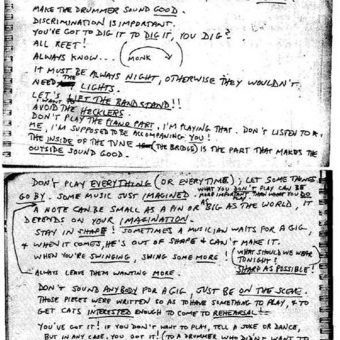 MAKE THE DRUMMER SOUND GOOD.
DISCRIMINATION IS IMPORTANT.
YOU'VE GOT TO DIG IT TO DIG IT, YOU DIG?
ALL REET!
ALWAYS KNOW... (MONK)
IT MUST BE ALWAYS NIGHT, OTHERWISE THEY WOULDN'T
NEED THE LIGHTS.
LET'S LIFT THE BAND STAND!!
I WANT TO AVOID THE HECKLERS
DON'T PLAY THE PIANO PART, I'M PLAYING THAT. DON'T LISTEN TO
ME, I'M SUPPOSED TO BE ACCOMPANYING YOU!
THE INSIDE OF THE TUNE (THE BRIDGE) IS THE PART THAT MAKES THE
OUTSIDE SOUND GOOD.
DON'T PLAY EVERYTHING (OR EVERYTIME); LET SOME THINGS
GO BY. SOME MUSIC JUST IMAGINED.
WHAT YOU DON'T PLAY CAN BE
MORE IMPORTANT THAN WHAT YOU DO
A NOTE CAN BE SMALL AS A PIN OR AS BIG AS THE WORLD, IT
DEPENDS ON YOUR IMAGINATION.
STAY IN SHAPE! SOMETIMES A MUSICIAN WAITS FOR A GIG,
& WHEN IT COMES, HE'S OUT OF SHAPE & CAN'T MAKE IT.
WHEN YOU'RE SWINGING, SWING SOME MORE!
(WHAT SHOULD WE WEAR
TONIGHT?
SHARP AS POSSIBLE!
ALWAYS LEAVE THEM WANTING MORE.
DON'T SOUND ANYBODY FOR A GIG, JUST BE ON THE SCENE.
THOSE PIECES WERE WRITTEN SO AS TO HAVE SOMETHING TO PLAY, & TO
GET CATS INTERESTED ENOUGH TO COME TO REHEARSAL.
YOU'VE GOT IT! IF YOU DON'T WANT TO PLAY, TELL A JOKE OR DANCE,
BUT IN ANY CASE, YOU GOT IT! (TO A DRUMMER WHO DIDN'T WANT TO